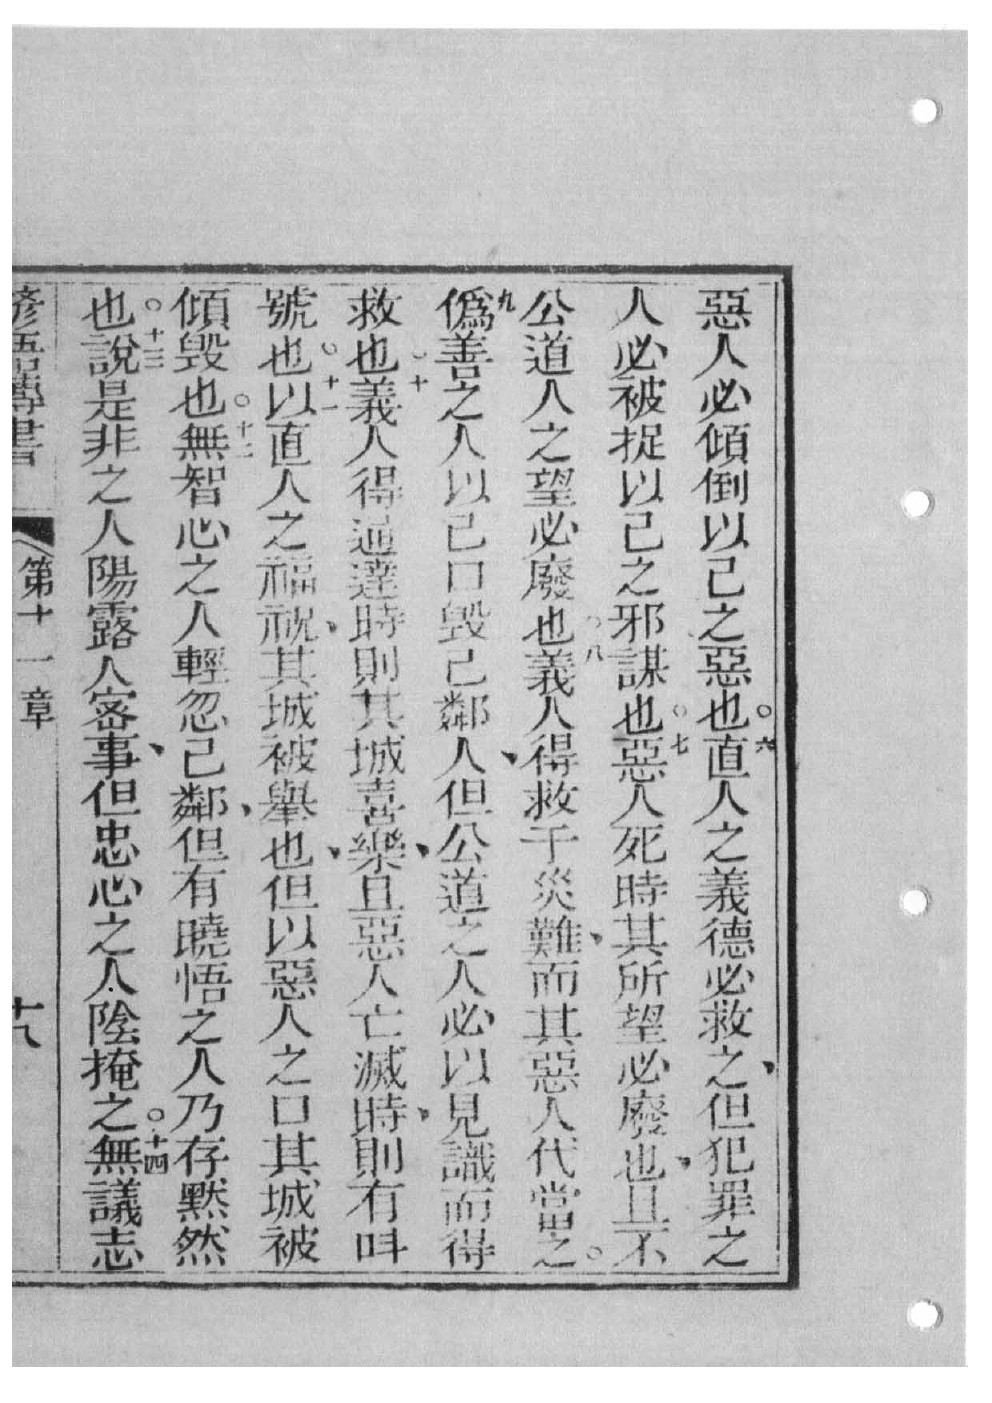 惡人必傾倒以己之惡也。六直人之義德必救之、但犯罪之
人必被捉以己之邪謀也。七惡人死時其所望必廢也、且不
公道人之望必廢也。八義人得救于災難、而其惡人代當之。
九僞善之人以己口毀己鄰人、但公道之人必以見識而得
救也。十義人得通達時則其城喜樂、且惡人亡滅時、則有呌
號也。十一以直人之福祝、其城被舉也、但以惡人之口其城被
傾毀也。十二無智心之人輕忽己鄰、但有曉悟之人乃存默然
也。十三說是非之人陽露人密事、但忠心之人陰掩之。十四無議志
諺語傳書 第十一章 十八